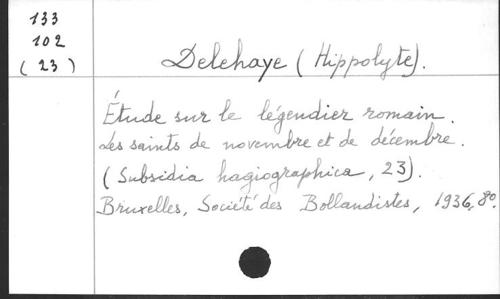 133
102
(23)
Delehaye (Hippolyte).
Étude sur le légendier romain.
Les saints de novembre et de décembre.
(Subsidia hagiographica, 23).
Bruxelles, Société des Bollandistes, 1936, 8º.